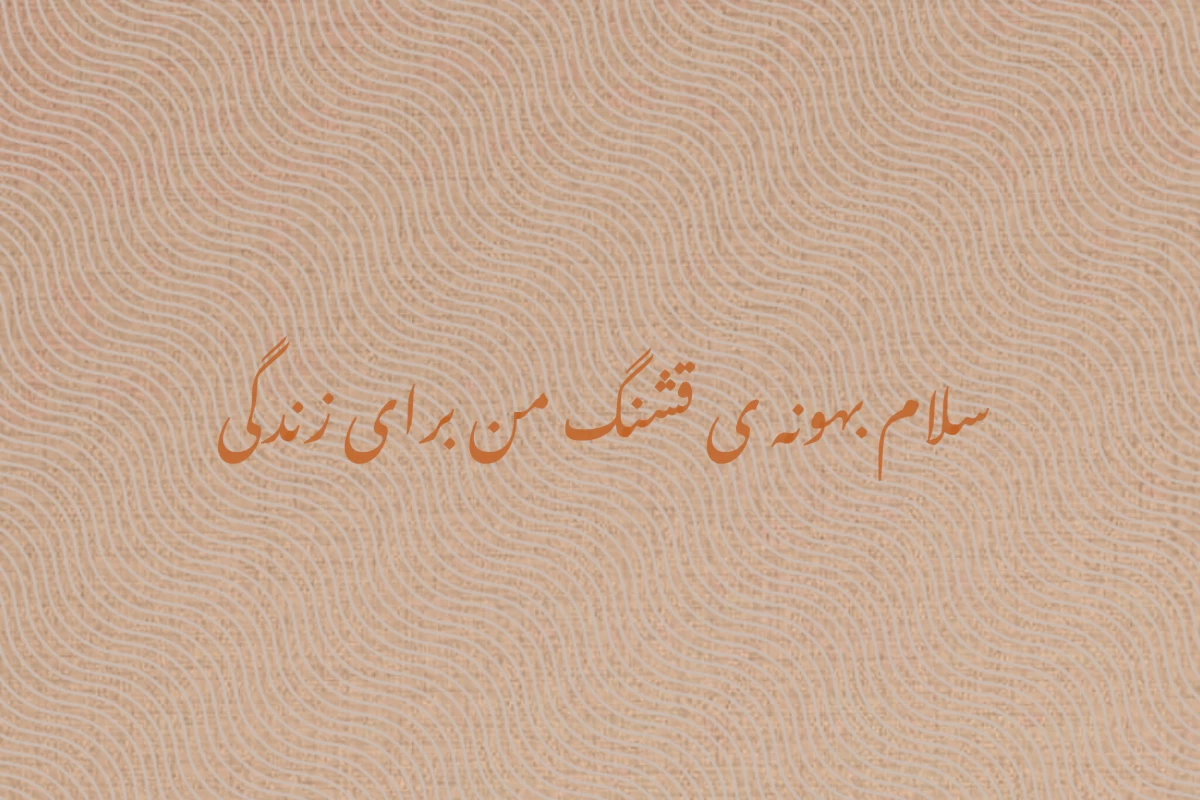 سلام بهونه ی قشنگ من برای زندگی